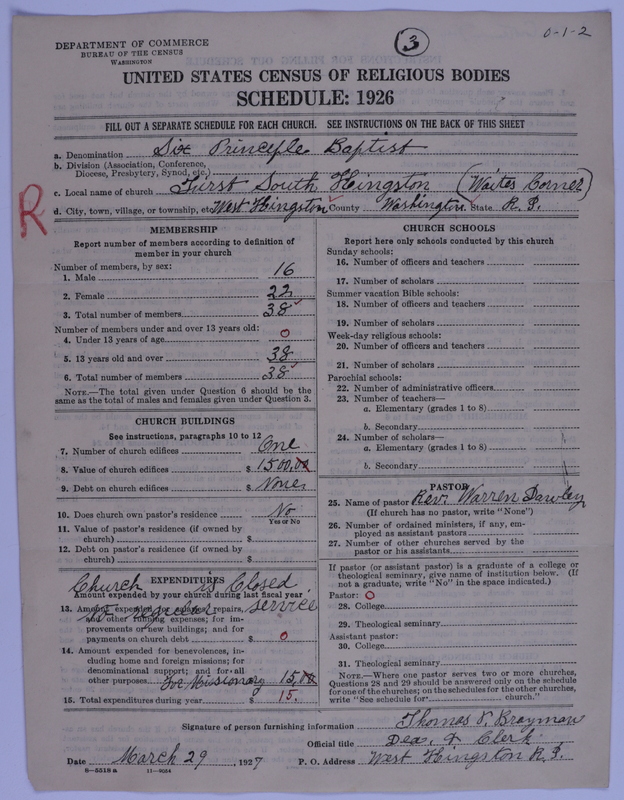 3
0-1-2
DEPARTMENT OF COMMERCE
BUREAU OF THE CENSUS
WASHINGTON
UNITED STATES CENSUS OF RELIGIOUS BODIES
SCHEDULE: 1926
FILL OUT A SEPARATE SCHEDULE FOR EACH CHURCH. SEE INSTRUCTIONS ON THE BACK OF THIS SHEET
a. Denomination Six Principle Baptist
b. Division (Association, Conference, Diocese, Presbytery, Synod, etc.)
c. Local name of church First South Kingston (Waites Corner)
R
d. City, town, village, or township, etc. West Kingston County Washington State R. I.
MEMBERSHIP
Report number of members according to definition of
member in your church
Number of members, by sex:
1. Male 16
2. Female 22
3. Total number of members 38
Number of members under and over 13 years old:
4. Under 13 years of age 0
5. 13 years old and over 38
6. Total number of members 38
NOTE.—The total given under Question 6 should be the
same as the total of males and females given under Question 3.
CHURCH BUILDINGS
See instructions, paragraphs 10 to 12
7. Number of church edifices One
8. Value of church edifices $ 1500.00
9. Debt on church edifices $ None
10. Does church own pastor's residence No
Yes or No
11. Value of pastor's residence (if owned by
church) $
12. Debt on pastor's residence (if owned by
church) $
EXPENDITURES
Church is Closed
Amount expended by your church during last fiscal year
for regular service
13. Amount expended for salaries, repairs,
and other running expenses; for im-
provements or new buildings; and for
payments on church debt $ 0
14. Amount expended for benevolences, in-
cluding home and foreign missions; for
denominational support; and for all
other purposes for Missionary 15.00
15. Total expenditures during year $ 15.
CHURCH SCHOOLS
Report here only schools conducted by this church
Sunday schools:
16. Number of officers and teachers
17. Number of scholars
Summer vacation Bible schools:
18. Number of officers and teachers
19. Number of scholars
Week-day religious schools:
20. Number of officers and teachers
21. Number of scholars
Parochial schools:
22. Number of administrative officers
23. Number of teachers—
a. Elementary (grades 1 to 8)
b. Secondary
24. Number of scholars—
a. Elementary (grades 1 to 8)
b. Secondary
PASTOR
25. Name of pastor Rev. Warren Dawley
(If church has no pastor, write "None")
26. Number of ordained ministers, if any, em-
ployed as assistant pastors
27. Number of other churches served by the
pastor or his assistants
If pastor (or assistant pastor) is a graduate of a college or
theological seminary, give name of institution below. (If
not a graduate, write "No" in the space indicated.)
Pastor: 0
28. College
29. Theological seminary
Assistant pastor:
30. College
31. Theological seminary
NOTE.—Where one pastor serves two or more churches,
Questions 28 and 29 should be answered only on the schedule
for one of the churches; on the schedules for the other churches,
write "See schedule for church."
Signature of person furnishing information Thomas S. Brayman
Official title Dea. & Clerk
Date March 29, 1927 P. O. Address West Kingston R. I.
8-5518 a 11-9034